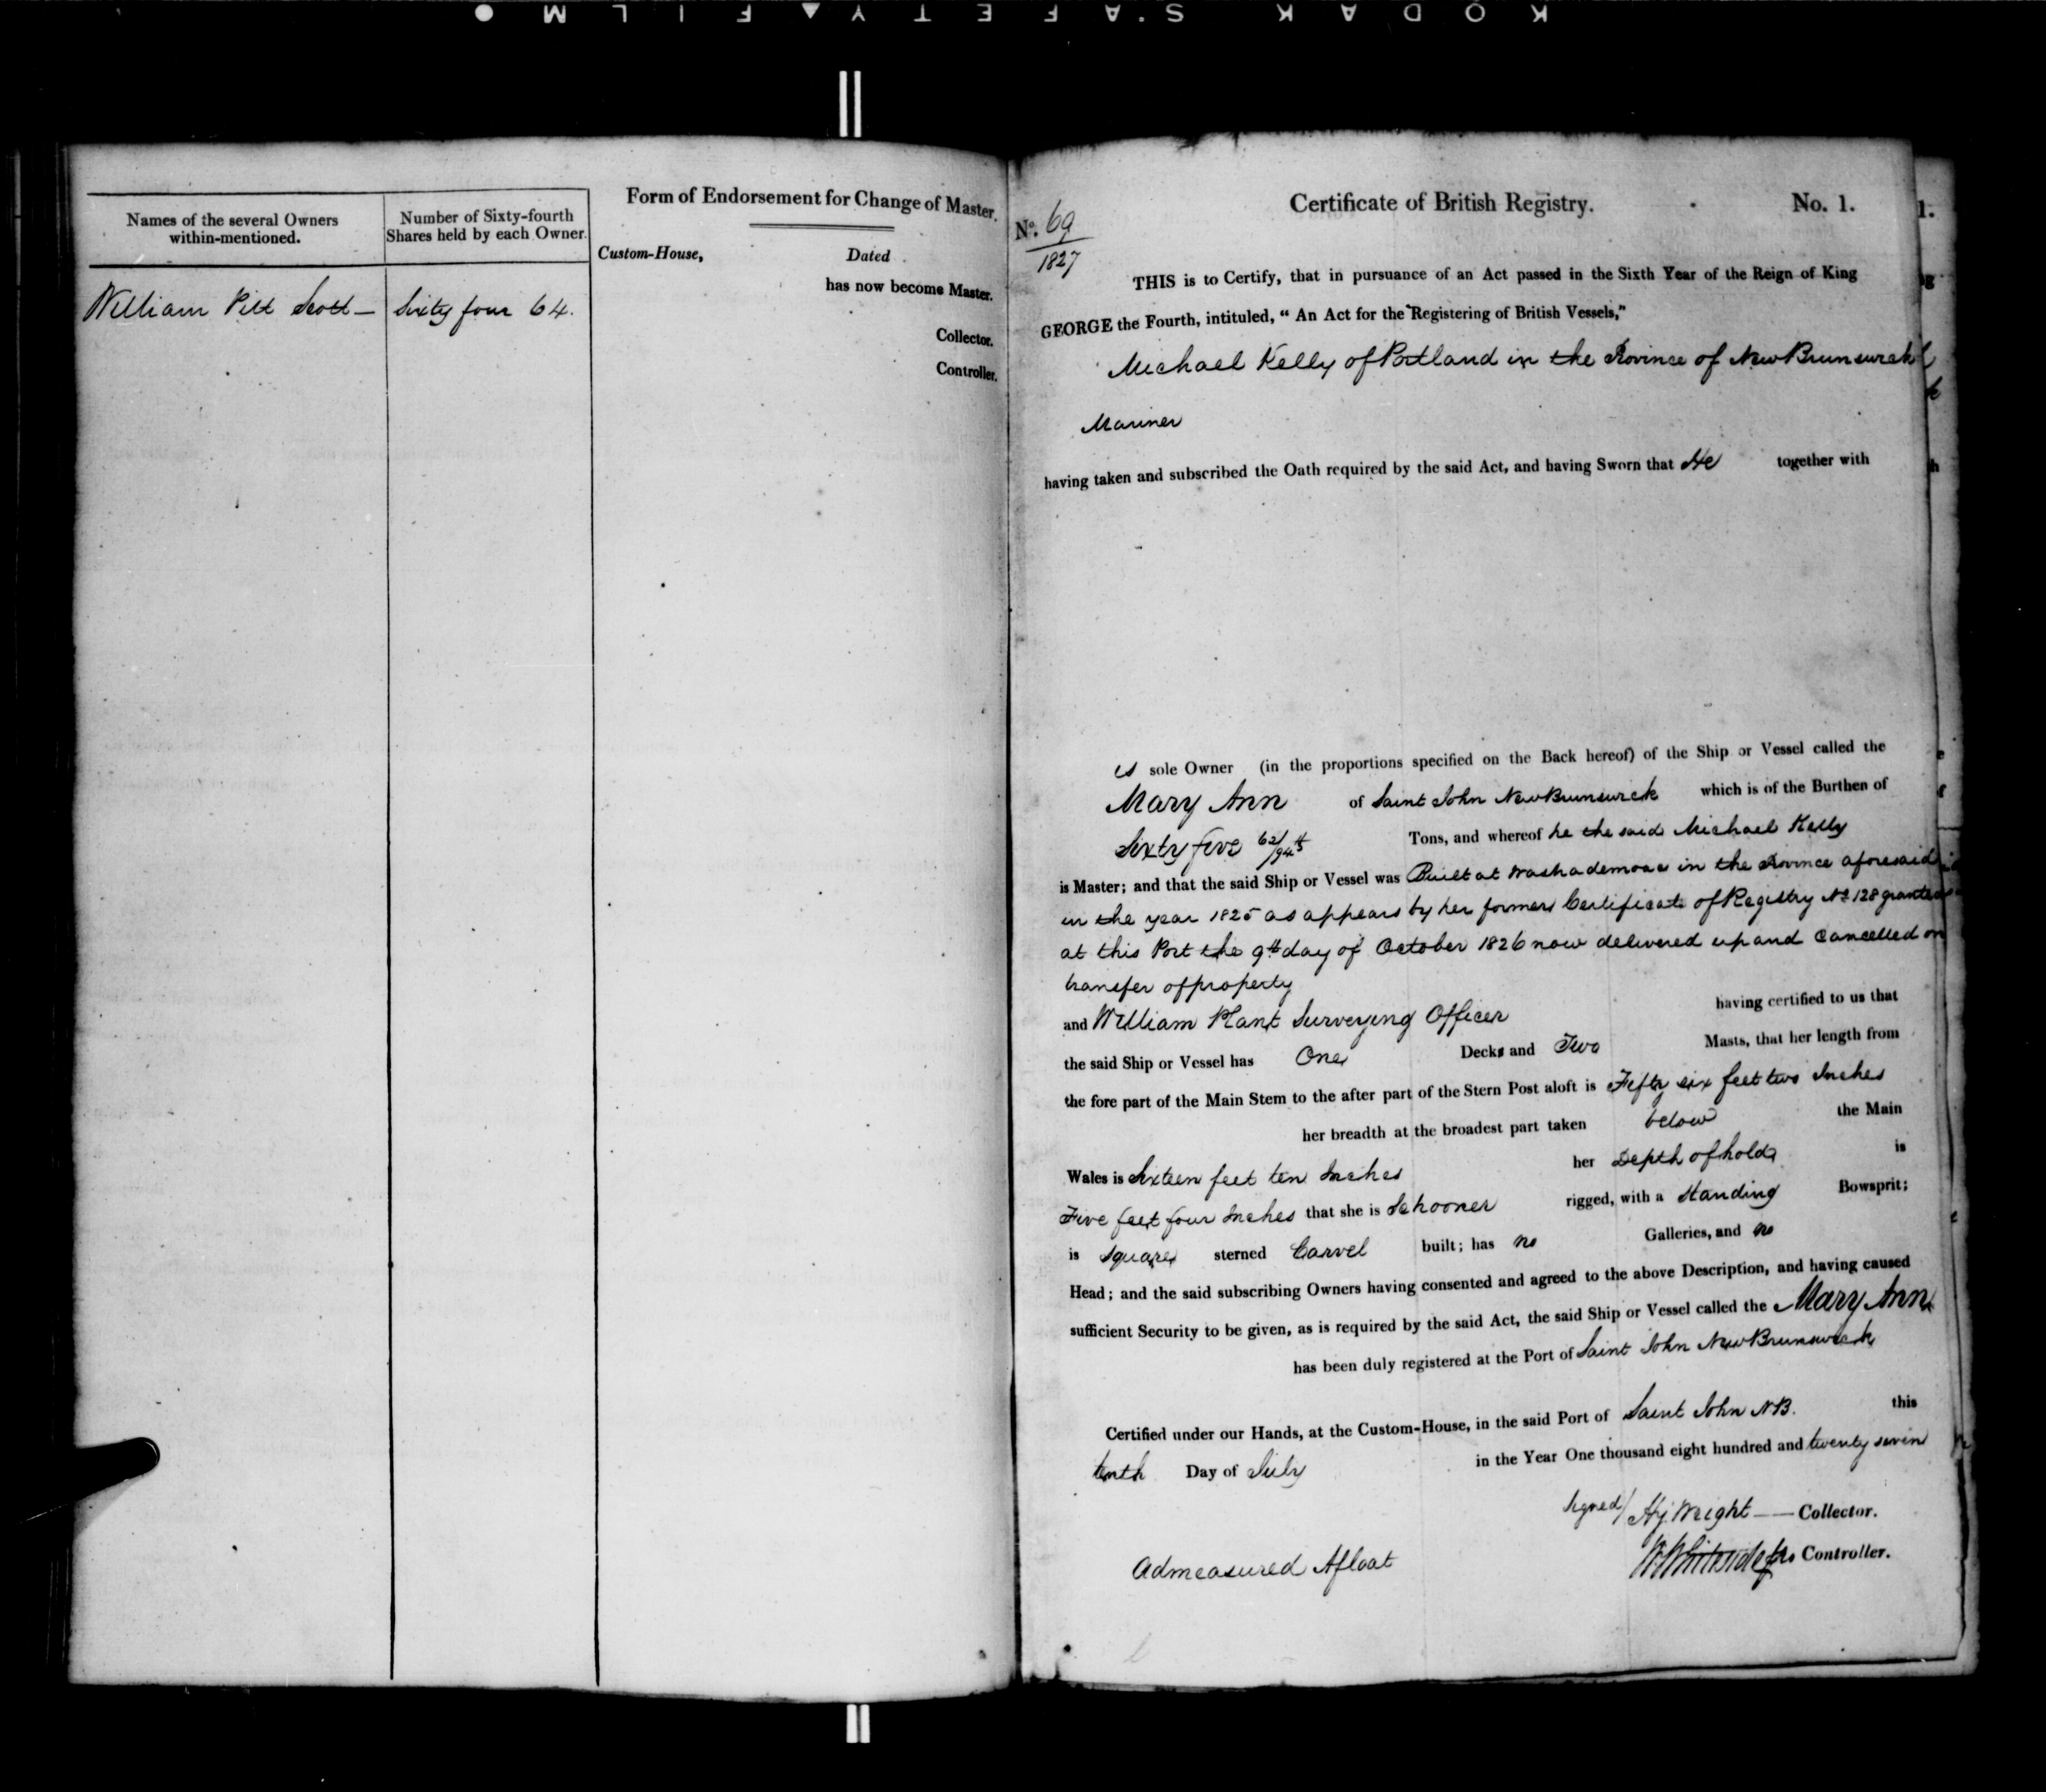 KODAK S'AFETY FILM
Names of the several Owners within-mentioned.
Number of Sixty-fourth Shares held by each Owner.
William Pitt Scott —
Sixty four 64.
Form of Endorsement for Change of Master.
Custom-House, Dated
has now become Master.
Collector.
Controller.
Certificate of British Registry. No. 1.
No. 69
1827
THIS is to Certify, that in pursuance of an Act passed in the Sixth Year of the Reign of King
GEORGE the Fourth, intituled, “ An Act for the Registering of British Vessels,”
Michael Kelly of Portland in the Province of New Brunswick
Mariner
having taken and subscribed the Oath required by the said Act, and having Sworn that He together with
is sole Owner (in the proportions specified on the Back hereof) of the Ship or Vessel called the
Mary Ann of Saint John New Brunswick which is of the Burthen of
Sixty five 62/94ths Tons, and whereof he the said Michael Kelly
is Master; and that the said Ship or Vessel was Built at Washademoac in the Province aforesaid
in the year 1825 as appears by her former Certificate of Registry No 128 granted
at this Port the 9th day of October 1826 now delivered up and Cancelled on
transfer of property
and William Plant Surveying Officer having certified to us that
the said Ship or Vessel has One Decks and Two Masts, that her length from
the fore part of the Main Stem to the after part of the Stern Post aloft is Fifty six feet two Inches
her breadth at the broadest part taken below the Main
Wales is Sixteen feet ten Inches her Depth of hold is
Five feet four Inches that she is Schooner rigged, with a Standing Bowsprit;
is Square sterned Carvel built; has no Galleries, and no
Head; and the said subscribing Owners having consented and agreed to the above Description, and having caused
sufficient Security to be given, as is required by the said Act, the said Ship or Vessel called the Mary Ann
has been duly registered at the Port of Saint John New Brunswick
Certified under our Hands, at the Custom-House, in the said Port of Saint John NB. this
tenth Day of July in the Year One thousand eight hundred and twenty seven
Signed/ Hy. Wright —— Collector.
Controller.
Admeasured Afloat